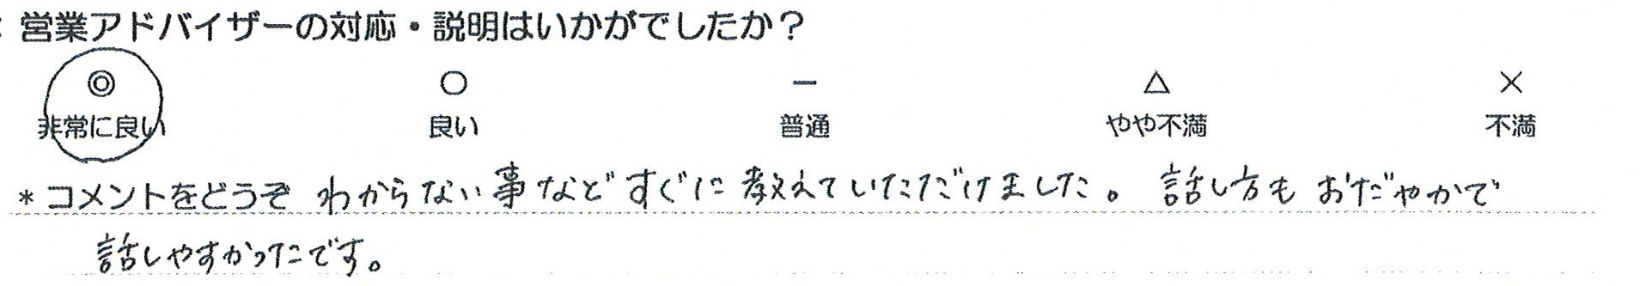 営業アドバイザーの対応・説明はいかがでしたか？
◎ ○ － △ ×
非常に良い 良い 普通 やや不満 不満
＊コメントをどうぞ わからない事などすぐに教えていただけました。 話し方もおだやかで
話しやすかったです。